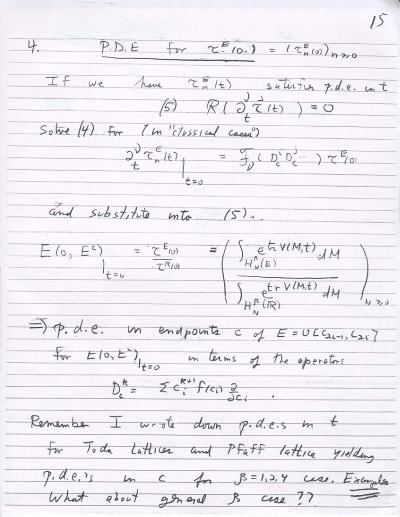 15
4. P.D.E for τ^E(0.) = (τ_n^E(0))_{n≥0}
If we have τ_n^E(t) satisfies p.d.e. in t
(5) R(∂_t^j τ^j(t)) = 0
Solve (4) for (in "classical cases")
∂_t^j τ_n^E(t)|_{t=0} = F_j(D_c^i D_c^j ...) τ^E(0)
and substitute into (5)..
E(0, E^c)|_{t=0} = τ^E(0)/τ^R(0) = (∫_{H_N^β(E)} e^{tr V(M,t)} dM / ∫_{H_N^β(R)} e^{tr V(M,t)} dM)_{N≥0}
⇒ p.d.e. in endpoints c of E = ∪[c_{2i-1}, c_{2i}]
for E(0,E^c)|_{t=0} in terms of the operators
D_c^k = Σ c_i^{k+1} f(c_i) ∂/∂c_i .
Remember I wrote down p.d.e.s in t
for Toda Lattices and Pfaff lattice yielding
p.d.e.'s in c for β=1,2,4 case. Examples
What about general β case ??